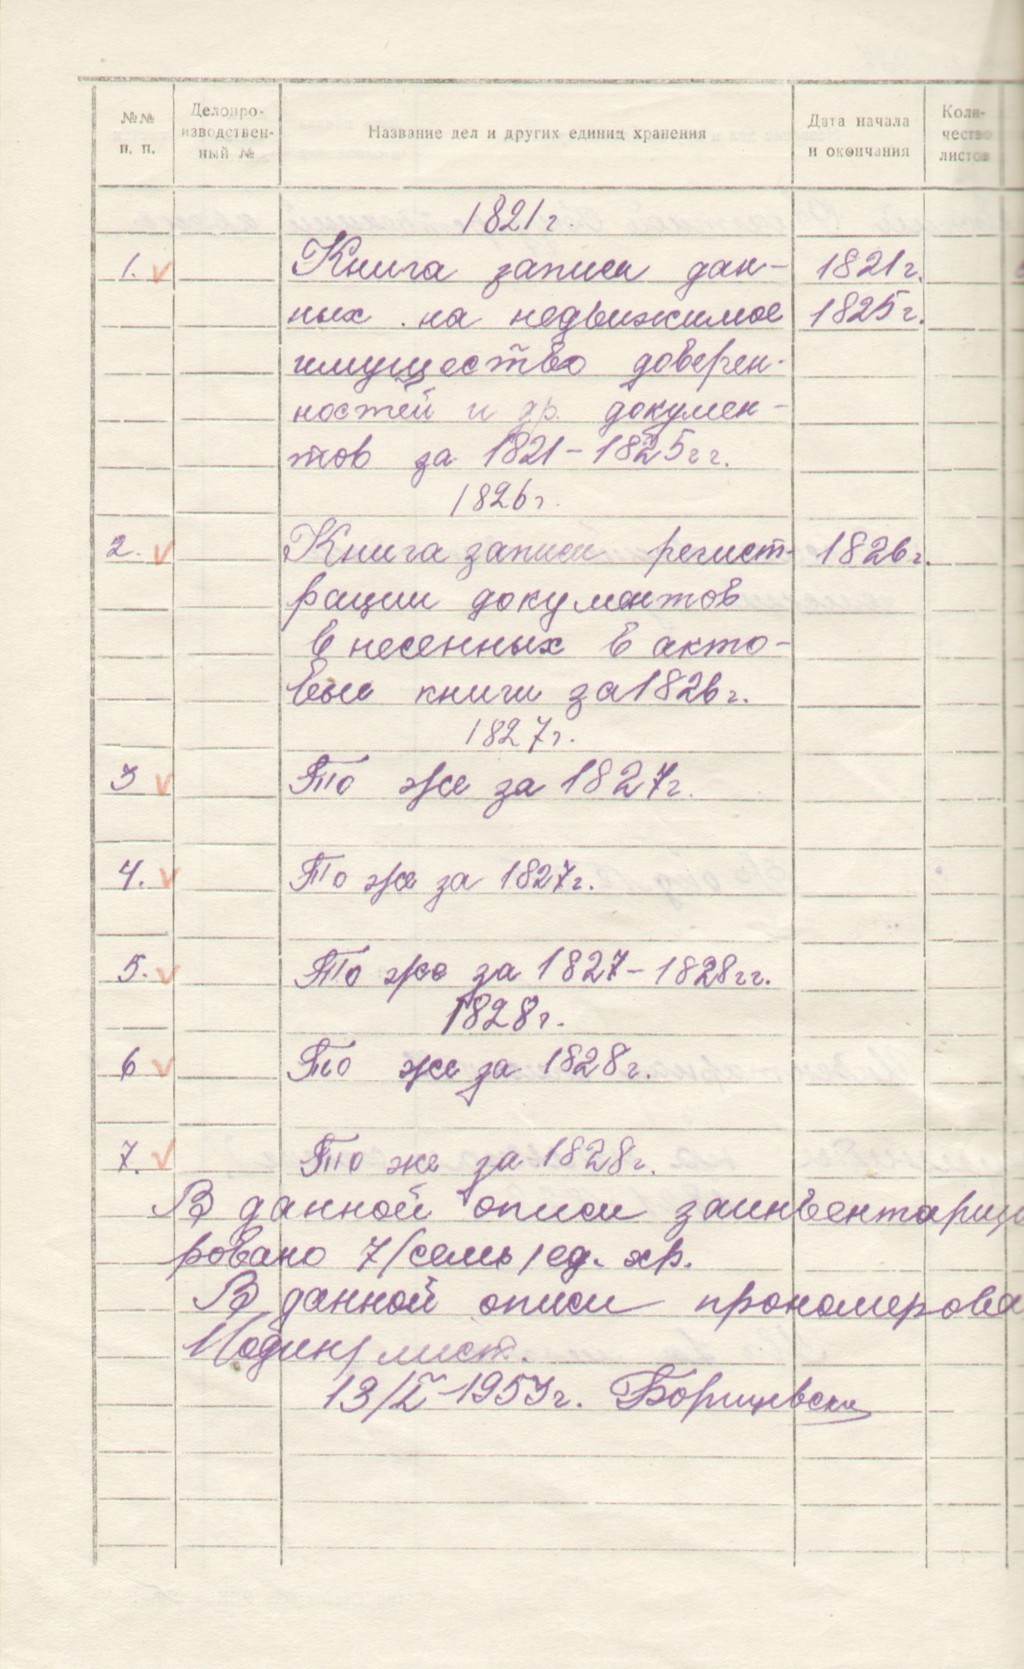 №№ п. п. Делопро-изводствен-ный № Название дел и других единиц хранения Дата начала и окончания Коли-чество листов
1821г.
1. Книга записи дан- 1821г.
ных на недвижимое 1825г.
имущество доверен-
ностей и др. докумен-
тов за 1821-1825гг.
1826г.
2. Книга записи регист- 1826г.
рации документов
внесенных в акто-
вые книги за 1826г.
1827г.
3 То же за 1827г.
4. То же за 1827г.
5. То же за 1827-1828гг.
1828г.
6 То же за 1828г.
7. То же за 1828г.
В данной описи заинвентаризи
ровано 7/семь/ед. хр.
В данной описи прономерова
1/один/ лист.